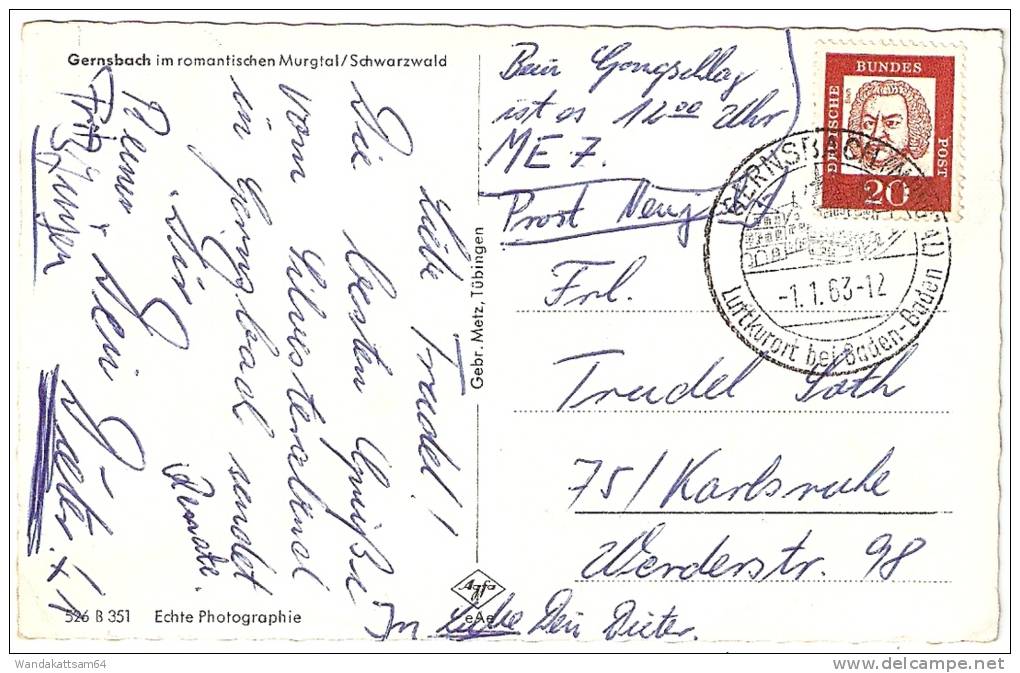 Gernsbach im romantischen Murgtal/Schwarzwald
Liebe Trudel!
Die besten Grüße
vom Silvesterabend
in Gernsbach sendet
Dir
Renate.
Dein Dieter.
Fritz
Jürgen
526 B 351 Echte Photographie
Gebr. Metz, Tübingen
Agfa
eAe
In Liebe Dein Dieter.
Beim Gongschlag
ist es 12 00 Uhr
MEZ.
Prost Neujahr
DEUTSCHE
BUNDES
POST
20
GERNSBACH (MURGTAL)
-1.1.63-12
Luftkurort bei Baden-Baden
Frl.
Trudel Soth
75/Karlsruhe
Werderstr. 98
Wandakattsam64
delcampe.net